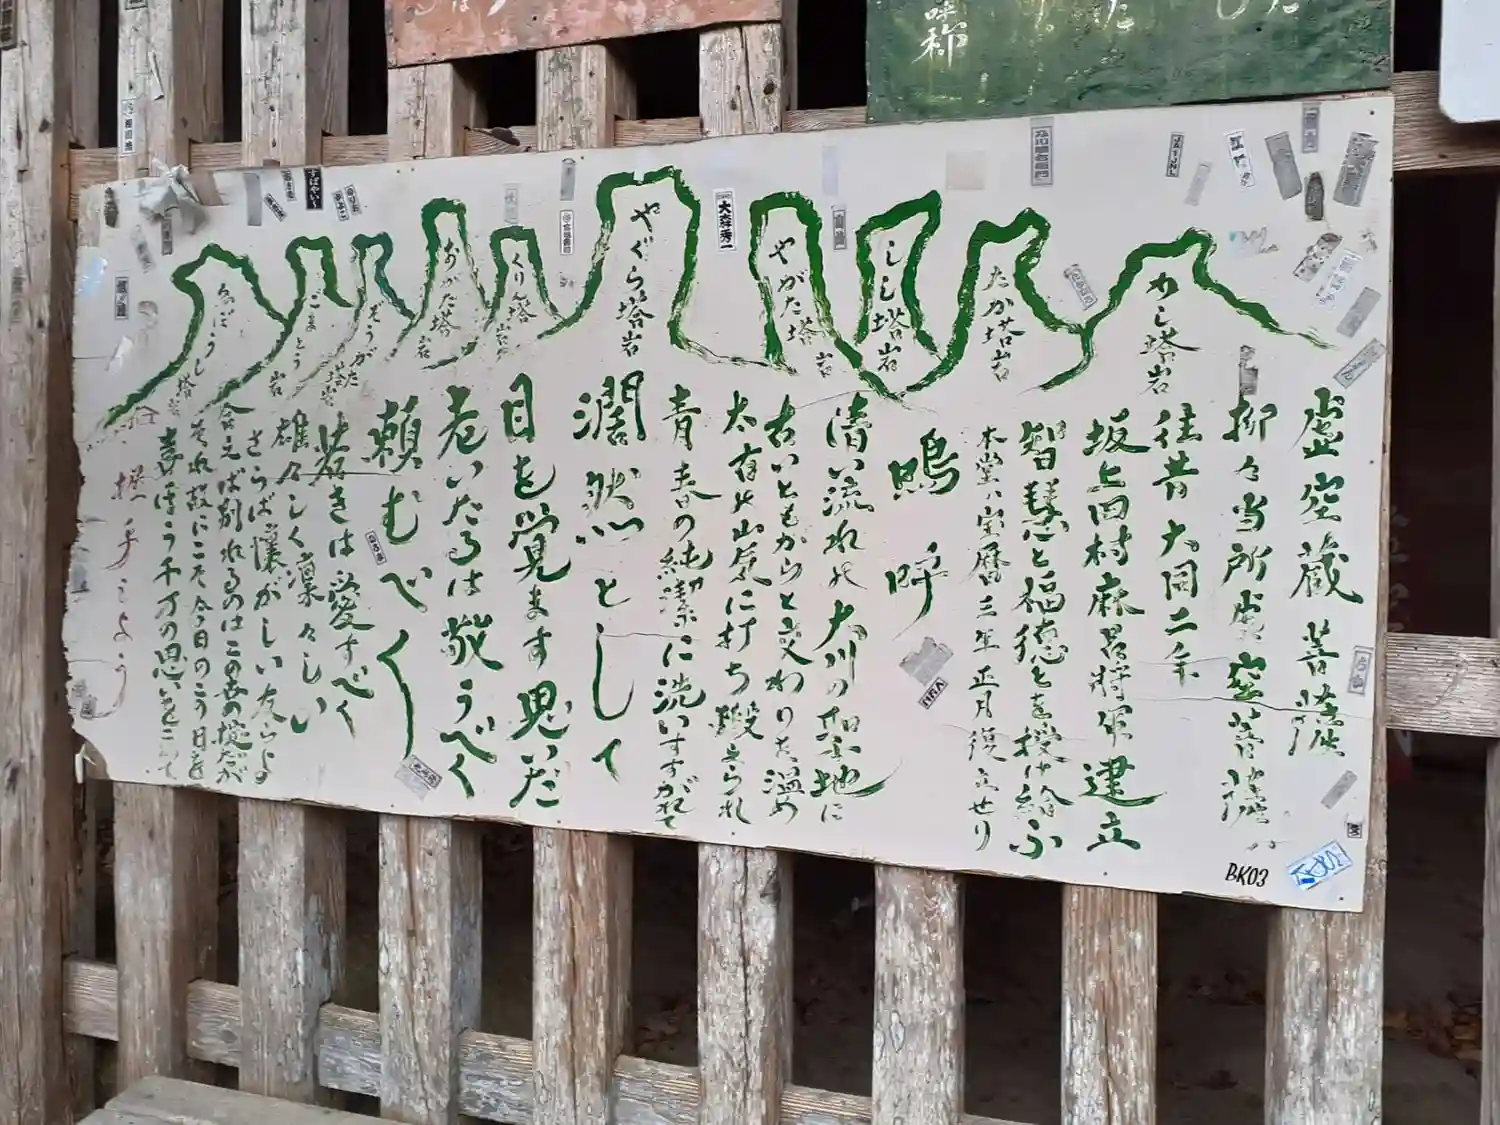 呼称
わし塔岩
たか塔岩
しし塔岩
やがた塔岩
やぐら塔岩
くり塔岩
おがた塔岩
ぞうがた塔岩
ごまとう岩
塔岩
虚空蔵菩薩
抑々当所虚空蔵菩薩ハ
往昔大同二年
坂上田村麻呂将軍建立
智慧と福徳とを授け給ふ
本堂ハ宝暦三年正月復立せり
嗚呼
清い流れの大川の聖地に
古いともがらと交わりた温め
太有の山気に打ち鍛えられ
青春の純潔に洗いすすがれて
濶然としてて
日を覚ます思いだ
老いたるは敬うべく
若きは愛すべく
頼むべく
雄々しく凜々しい
さらば懐がしい友山よ
合えば別れるのはこの世の掟だが
それ故にこそ今日のこの日を
喜ほう千万の思いをこめて
握手しよう
大森秀一
BK03